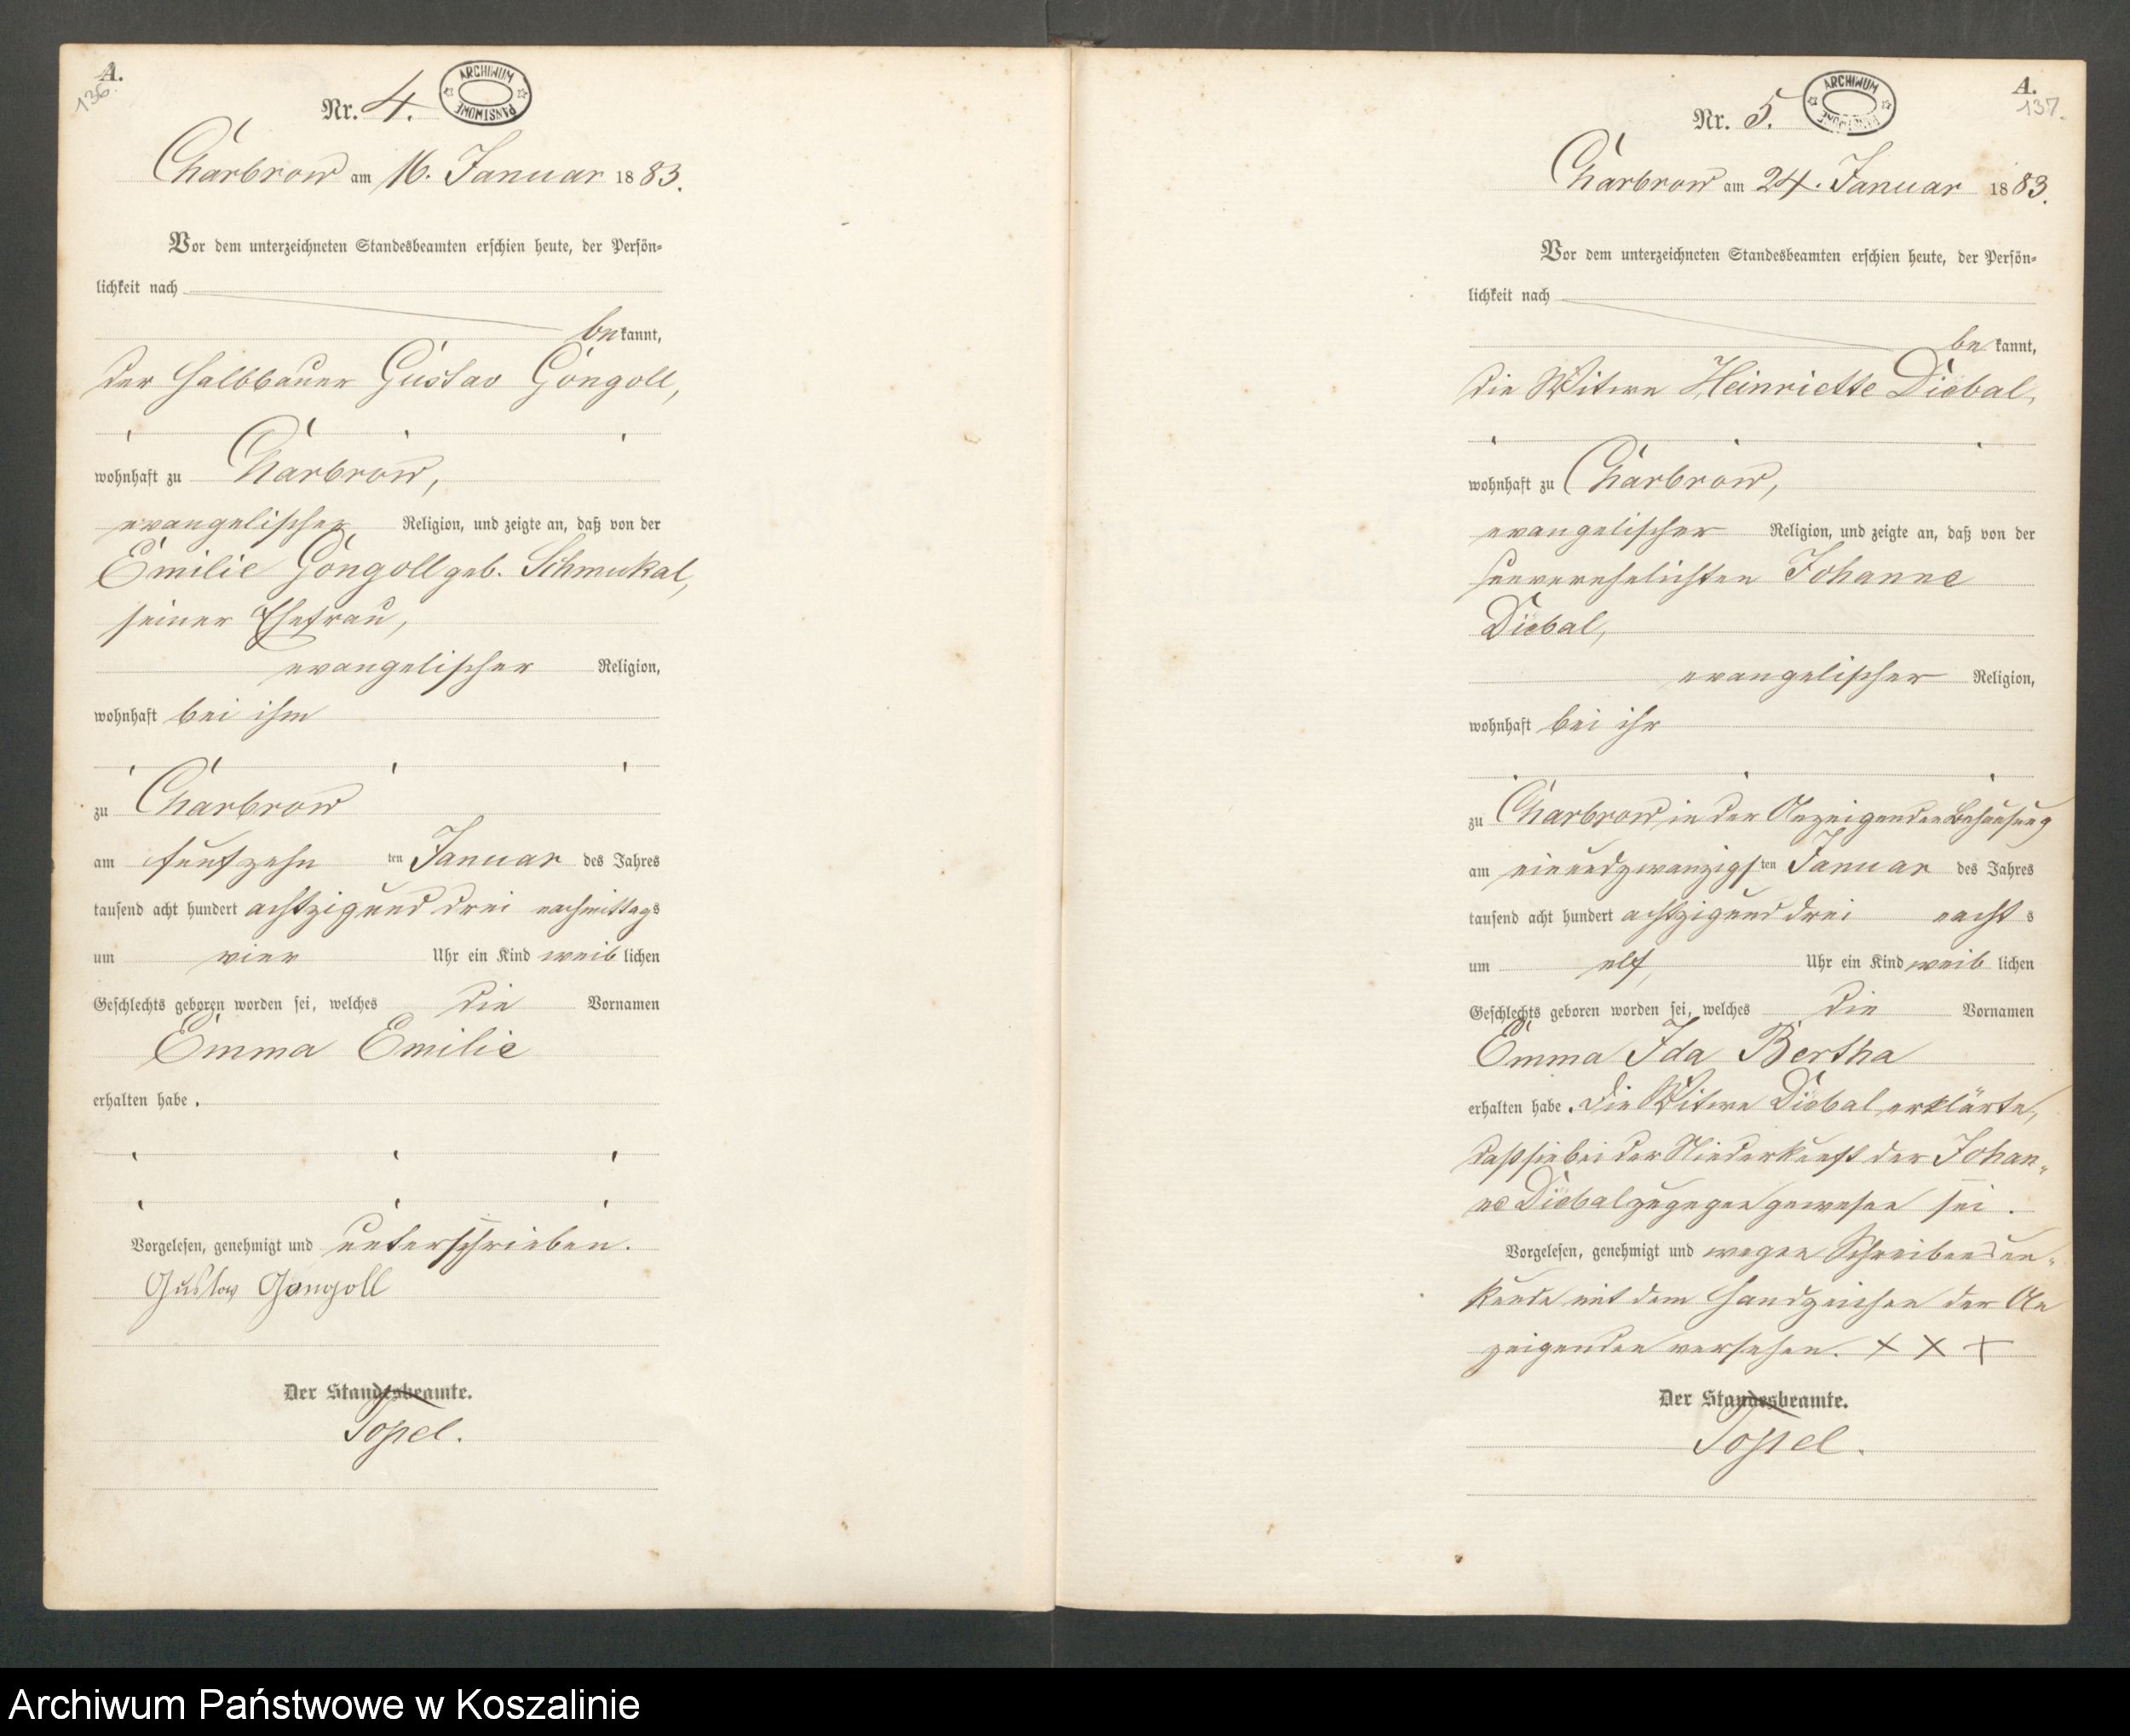 A.
136.
Nr. 4.
ARCHIWUM PAŃSTWOWE
Charbrow am 16. Januar 1883.
Vor dem unterzeichneten Standesbeamten erschien heute, der Persön-
lichkeit nach
be kannt,
der Halbbauer Gustav Gongoll,
wohnhaft zu Charbrow,
evangelischer Religion, und zeigte an, daß von der
Emilie Gongoll geb. Schmukal,
seiner Ehefrau,
evangelischer Religion,
wohnhaft bei ihm
zu Charbrow
am fünfzehn ten Januar des Jahres
tausend acht hundert achtzig und drei nachmittags
um vier Uhr ein Kind weib lichen
Geschlechts geboren worden sei, welches die Vornamen
Emma Emilie
erhalten habe.
Vorgelesen, genehmigt und unterschrieben.
Gustav Gongoll
Der Standesbeamte.
Topel.
A.
137.
Nr. 5.
ARCHIWUM PAŃSTWOWE
Charbrow am 24. Januar 1883.
Vor dem unterzeichneten Standesbeamten erschien heute, der Persön-
lichkeit nach
be kannt,
die Witwe Heinriette Diebal,
wohnhaft zu Charbrow,
evangelischer Religion, und zeigte an, daß von der
unverehelichten Johanne
Diebal,
evangelischer Religion,
wohnhaft bei ihr
zu Charbrow in der Anzeigenden Behausung
am einundzwanzigs ten Januar des Jahres
tausend acht hundert achtzig und drei nacht s
um elf Uhr ein Kind weib lichen
Geschlechts geboren worden sei, welches die Vornamen
Emma Ida Bertha
erhalten habe. Die Witwe Diebal erklärte,
daß sie bei der Niederkunft der Johan-
ne Diebal zugegen gewesen sei.
Vorgelesen, genehmigt und wegen Schreibens un-
kunde mit dem Handzeichen der An
zeigenden versehen. x x x
Der Standesbeamte.
Topel.
Archiwum Państwowe w Koszalinie